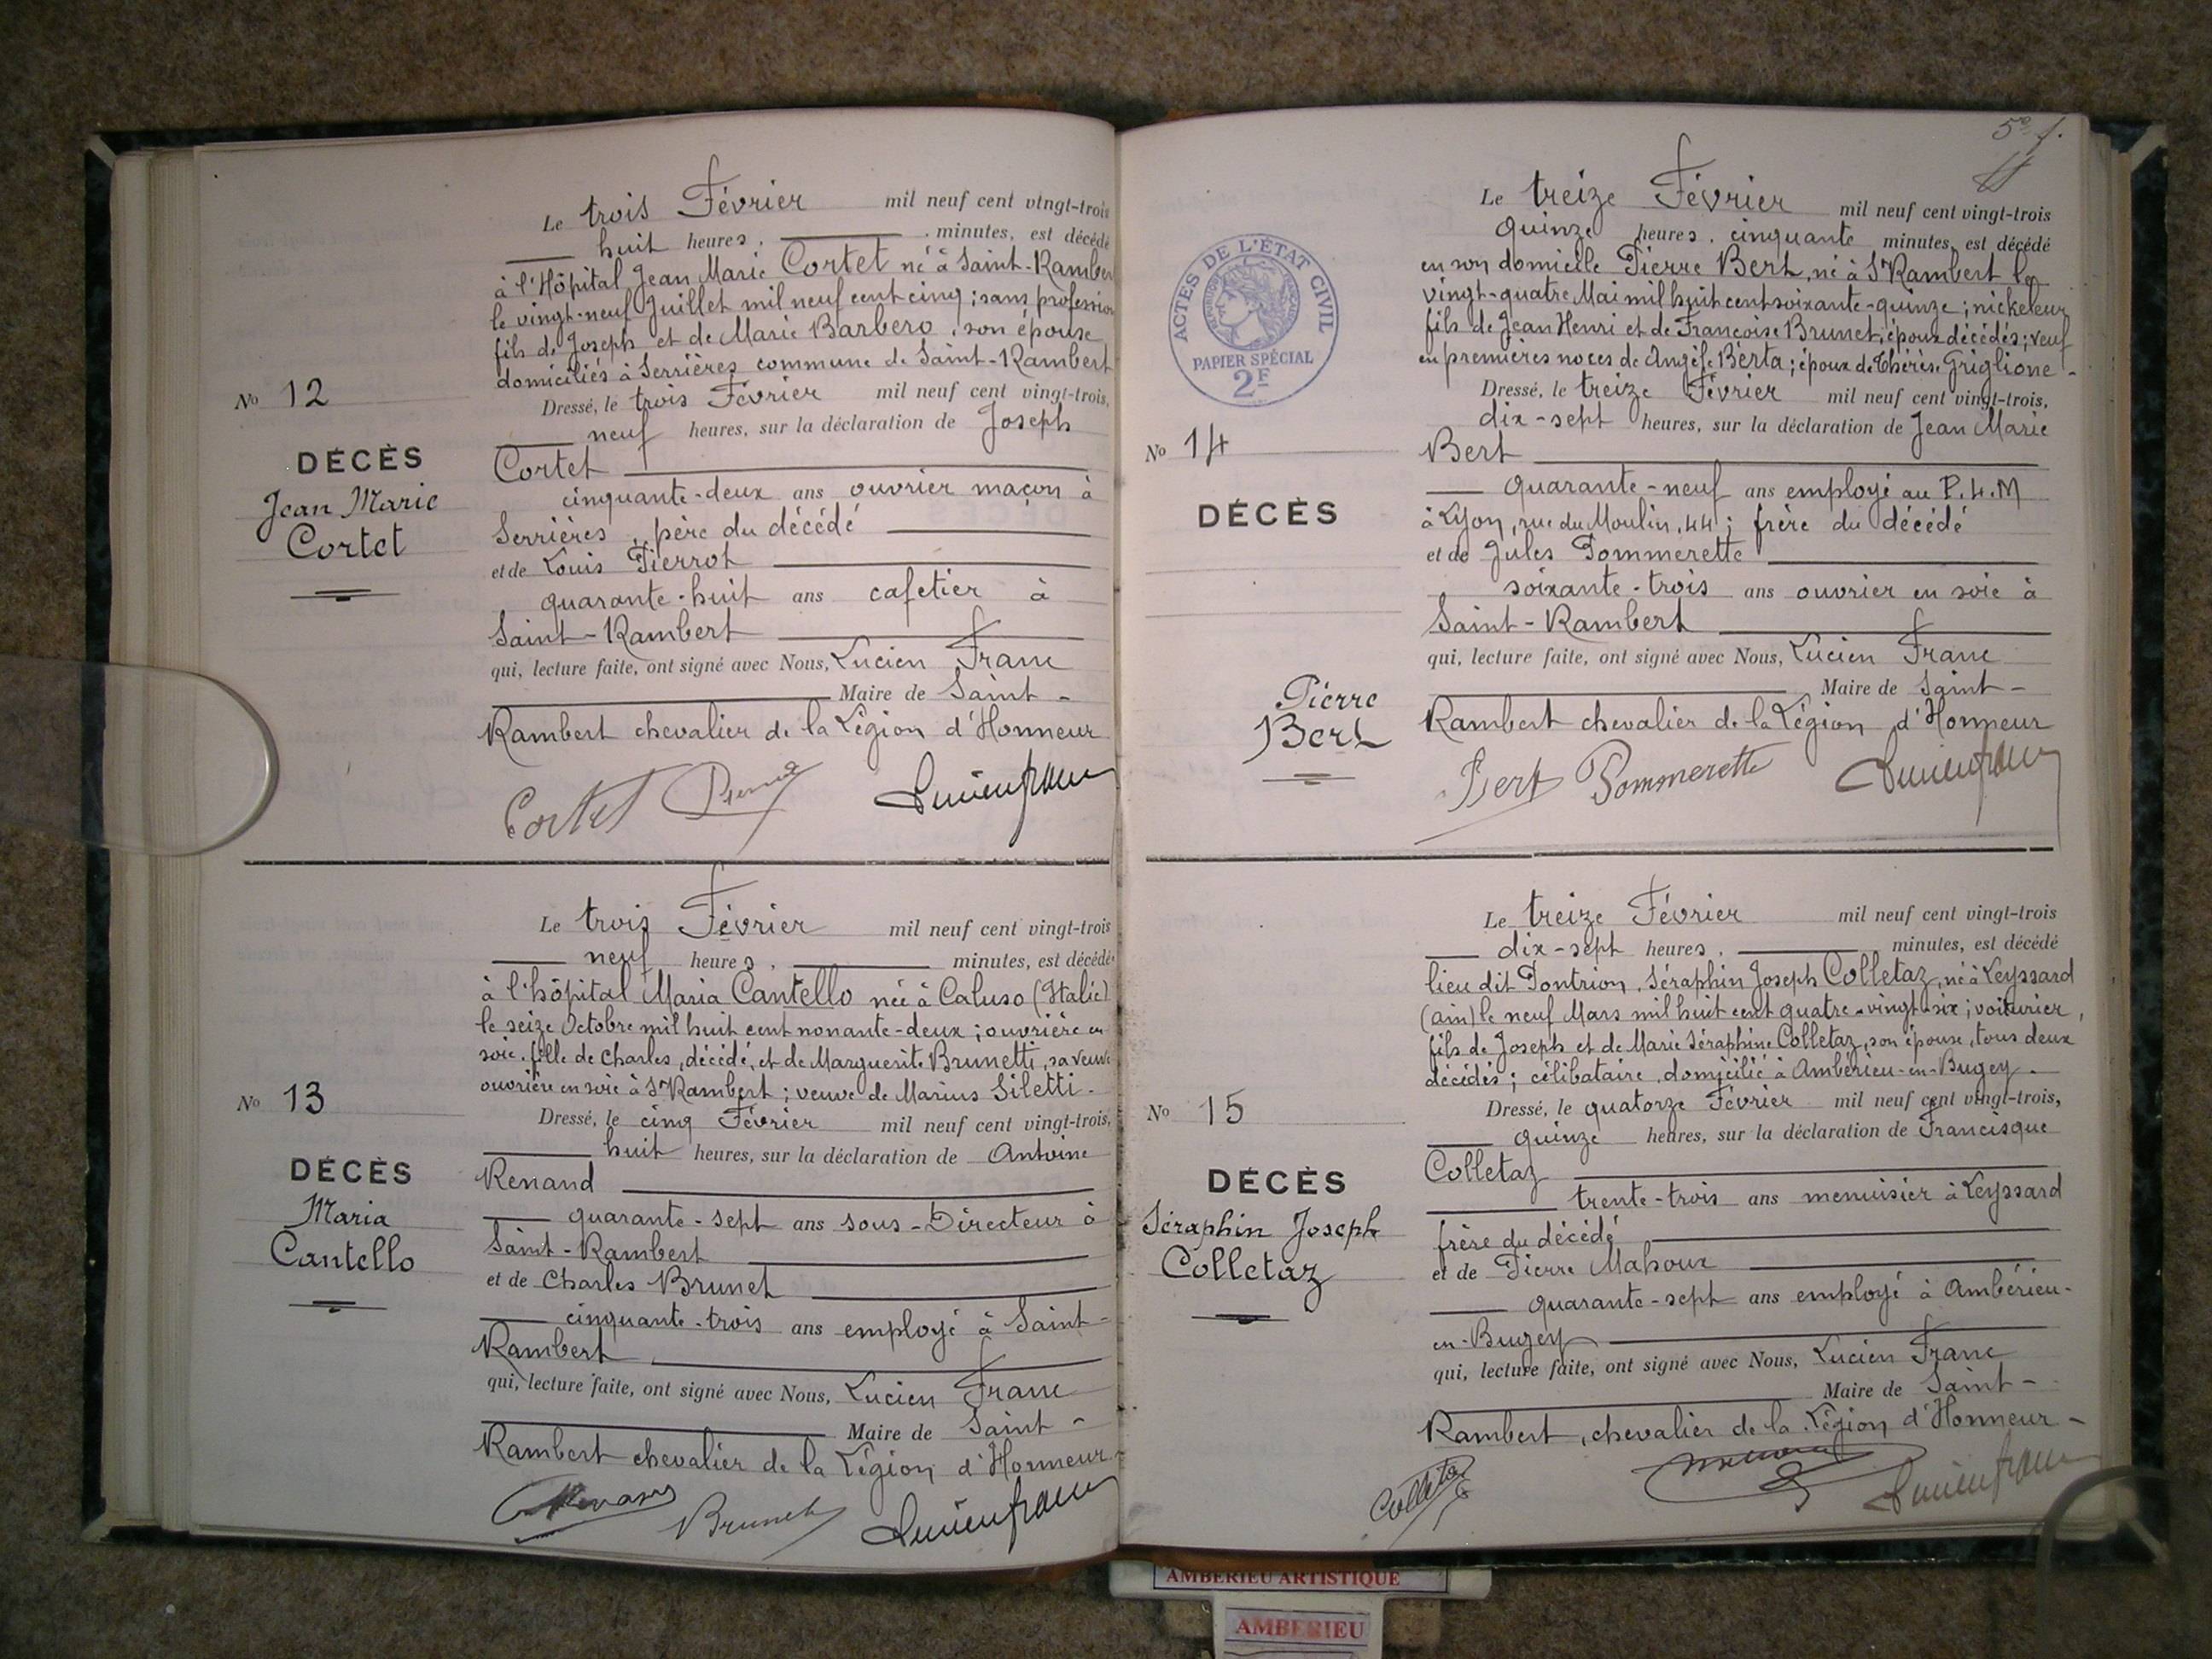 Le trois Février mil neuf cent vingt-trois
huit heures, minutes, est décédé
à l'Hôpital Jean Marie Cortet né à Saint-Rambert
le vingt-neuf Juillet mil neuf cent cinq; sans profession
fils de Joseph et de Marie Barbero, son épouse
domiciliés à Serrières commune de Saint-Rambert
No 12
Dressé, le trois Février mil neuf cent vingt-trois,
neuf heures, sur la déclaration de Joseph
DÉCÈS
Cortet
Jean Marie
cinquante-deux ans ouvrier maçon à
Cortet
Serrières, père du décédé
et de Louis Pierrot
quarante-huit ans cafetier à
Saint-Rambert
qui, lecture faite, ont signé avec Nous, Lucien Franc
Maire de Saint-
Rambert chevalier de la Légion d'Honneur
Cortet Lucien franc
Le trois Février mil neuf cent vingt-trois
neuf heures, minutes, est décédé
à l'hôpital Maria Cantello née à Caluso (Italie)
le seize Octobre mil huit cent nonante-deux; ouvrière en
soie, fille de Charles, décédé, et de Marguerite Brunetti, sa veuve
ouvrière en soie à St Rambert; veuve de Marius Siletti.
No 13
Dressé, le cinq Février mil neuf cent vingt-trois,
huit heures, sur la déclaration de Antoine
DÉCÈS
Renand
Maria
quarante-sept ans sous-Directeur à
Cantello
Saint-Rambert
et de Charles Brunet
cinquante-trois ans employé à Saint-
Rambert
qui, lecture faite, ont signé avec Nous, Lucien Franc
Maire de Saint-
Rambert chevalier de la Légion d'Honneur
Brunet Lucien franc
5e f.
ACTES DE L'ÉTAT CIVIL
PAPIER SPÉCIAL
2F
Le treize Février mil neuf cent vingt-trois
quinze heures, cinquante minutes, est décédé
en son domicile Pierre Bert, né à St Rambert le
vingt-quatre Mai mil huit cent soixante-quinze; nickeleur
fils de Jean Henri et de Françoise Brunet, époux décédés; veuf
en premières noces de Angèle Berta; époux de Thérèse Griglione-
No 14
Dressé, le treize Février mil neuf cent vingt-trois,
dix-sept heures, sur la déclaration de Jean Marie
Bert
DÉCÈS
quarante-neuf ans employé au P.L.M
à Lyon, rue du Moulin, 44; frère du décédé
et de Jules Pommerette
soixante-trois ans ouvrier en soie à
Saint-Rambert
qui, lecture faite, ont signé avec Nous, Lucien Franc
Pierre
Bert
Maire de Saint-
Rambert chevalier de la Légion d'Honneur
Bert Pommerette Lucien franc
Le treize Février mil neuf cent vingt-trois
dix-sept heures, minutes, est décédé
lieu dit Pontrion, Séraphin Joseph Colletaz, né à Leyssard
(ain) le neuf Mars mil huit cent quatre-vingt-six; voiturier,
fils de Joseph et de Marie Séraphine Colletaz, son épouse, tous deux
décédés; célibataire, domicilié à Ambérieu-en-Bugey.
No 15
Dressé, le quatorze Février mil neuf cent vingt-trois,
quinze heures, sur la déclaration de Francisque
Colletaz
DÉCÈS
trente-trois ans menuisier à Leyssard
Séraphin Joseph
frère du décédé
Colletaz
et de Pierre Mahoux
quarante-sept ans employé à Ambérieu-
en-Bugey
qui, lecture faite, ont signé avec Nous, Lucien Franc
Maire de Saint-
Rambert, chevalier de la Légion d'Honneur-
Colletaz Lucien franc
AMBERIEU ARTISTIQUE
AMBERIEU